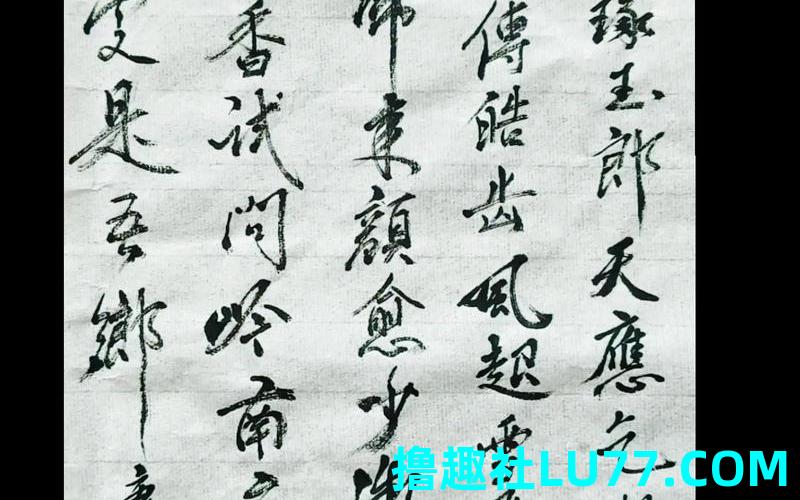 琢玉郎天應乞
傳皓齒風起雪
歸來顏愈少微
香試問岭南
是吾鄉
撸趣社LU77.COM